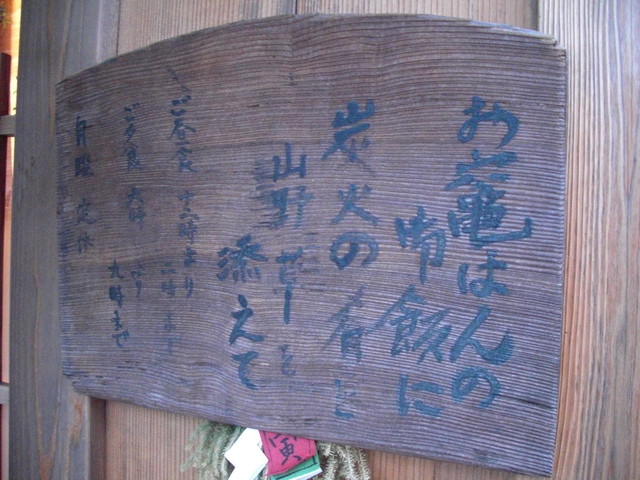 お竈はんの
御飯に
炭火の肴と
山野草を
添えて
ご昼食 十二時より
二時まで
ご夕食 六時 より
九時まで
定休
寅